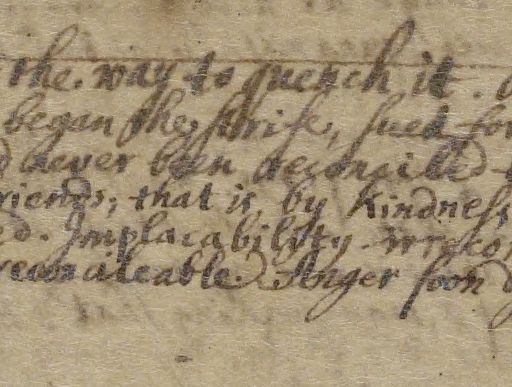 the way to quench it.
began the strife, sued for
never been reconciled
riends; that is by kindness
ed. Implacability
reconcileable. Anger soon